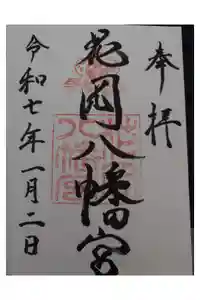 奉拝
花岡八幡宮
令和七年一月二日